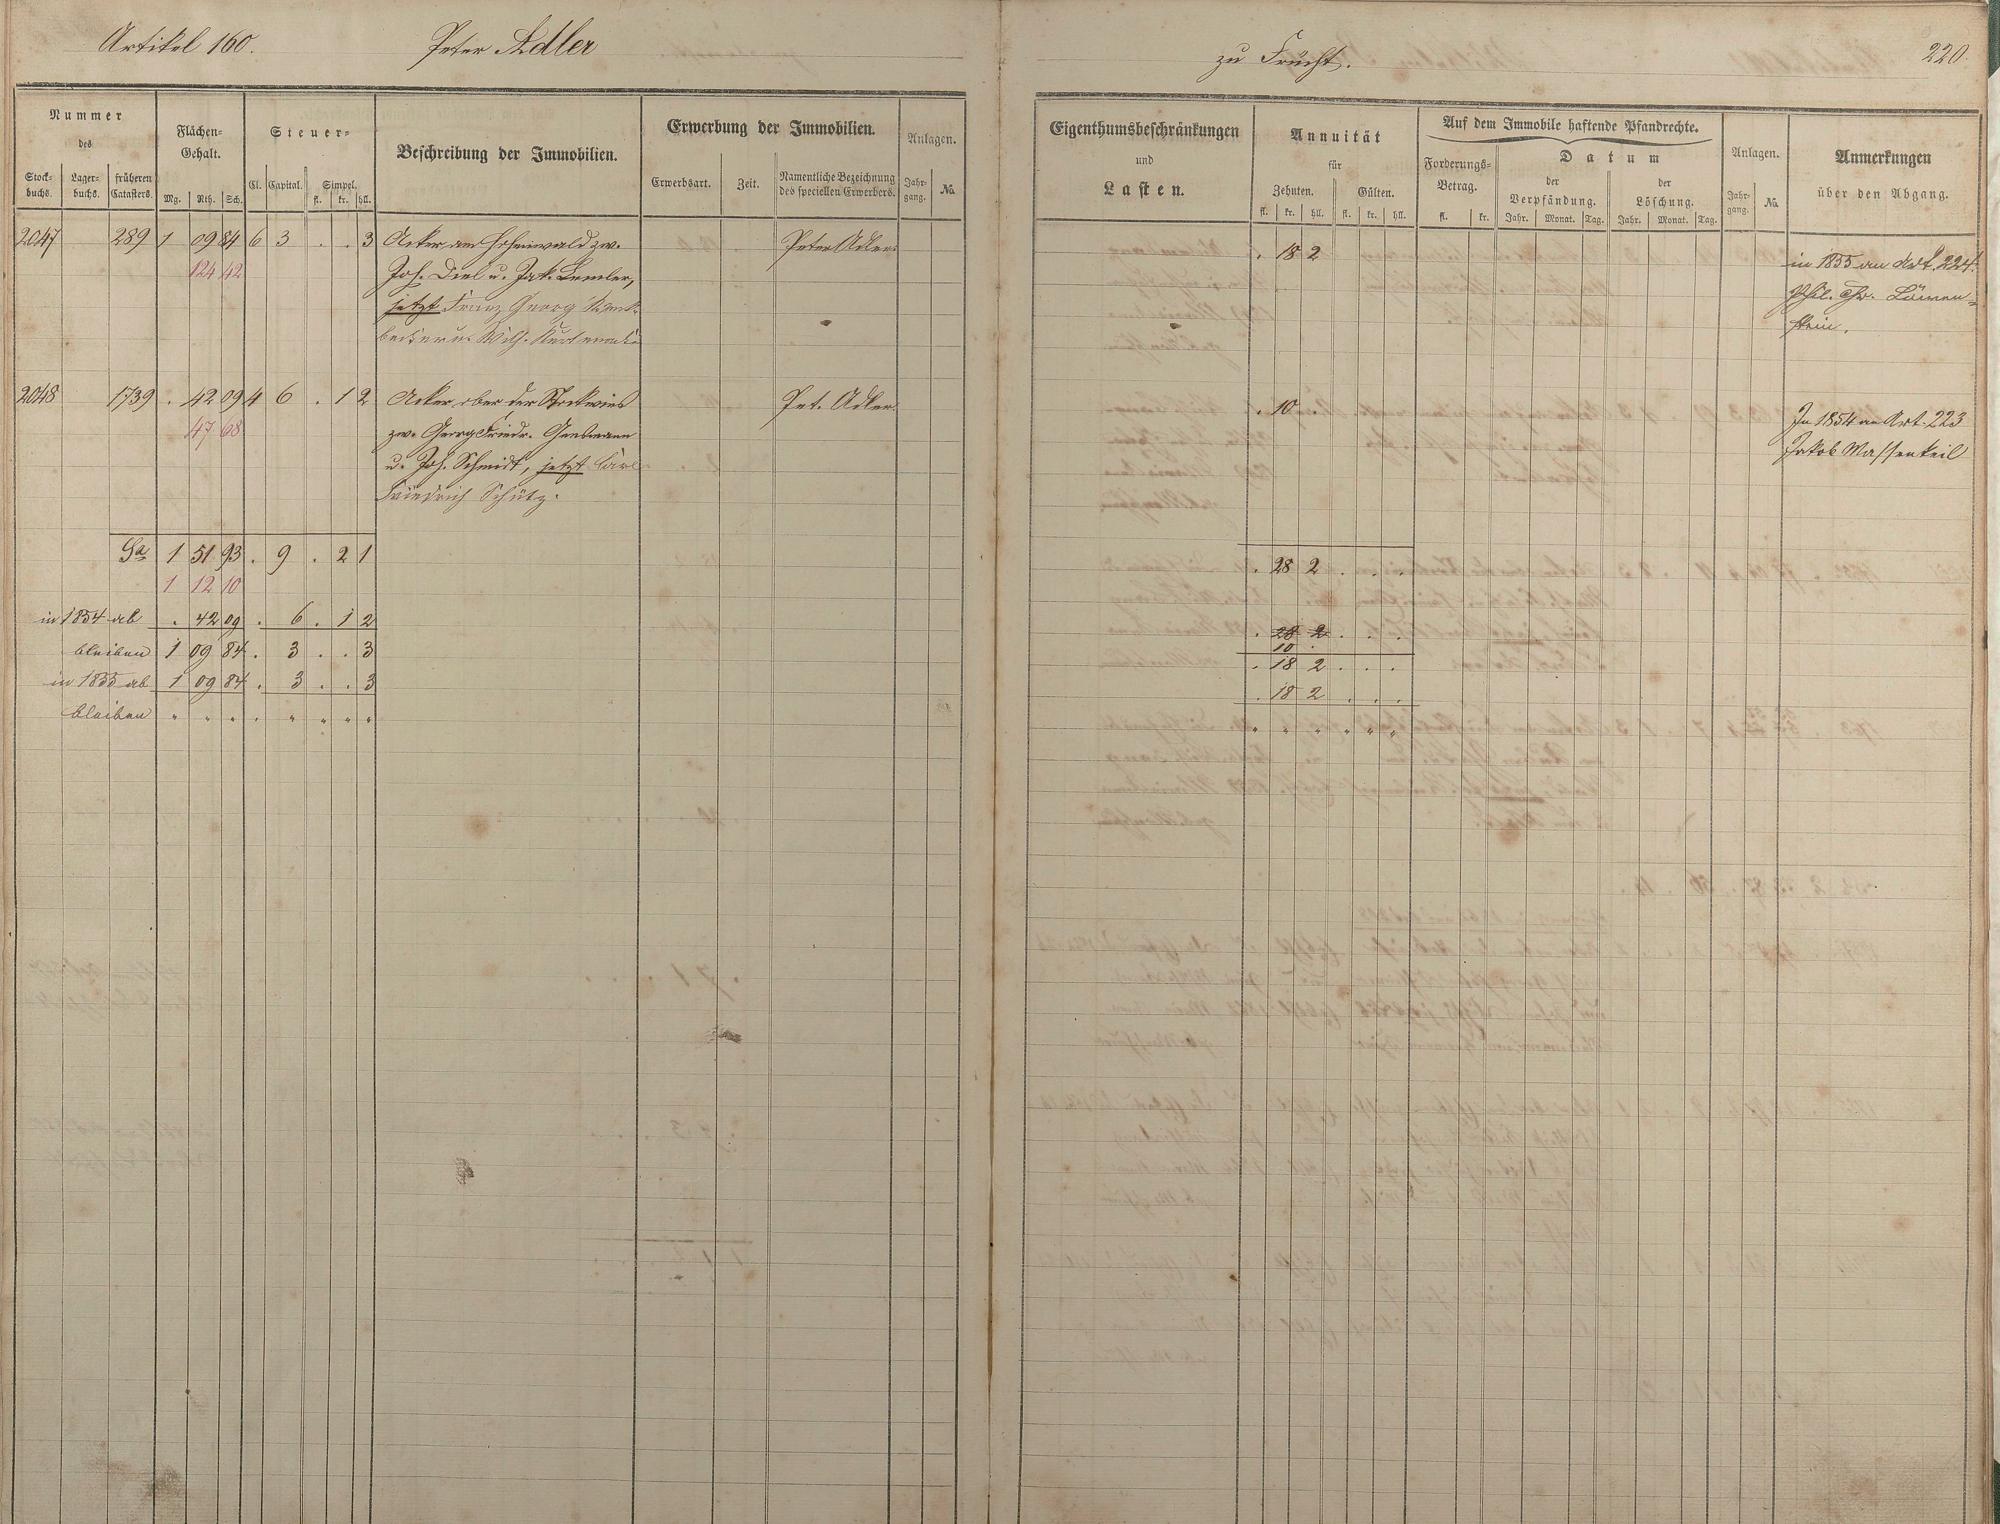 Artikel 160. Peter Adler zu Frücht. 220.
Nummer
des
Stock-
buchs.
Lager-
buchs.
früheren
Catasters.
Flächen-
Gehalt.
Mg. Rth. Sch.
Steuer-
Cl. Capital. Simpel.
fl. kr. hll.
Beschreibung der Immobilien.
Erwerbung der Immobilien.
Erwerbsart. Zeit. Namentliche Bezeichnung
des speciellen Erwerbers.
Anlagen.
Jahr-
gang. No.
Eigenthumsbeschränkungen
und
Lasten.
Annuität
für
Zehnten. Gülten.
fl. kr. hll. fl. kr. hll.
Auf dem Immobile haftende Pfandrechte.
Forderungs-
Betrag.
fl. kr.
Datum
der
Verpfändung.
Jahr. Monat. Tag.
der
Löschung.
Jahr. Monat. Tag.
Anlagen.
Jahr-
gang. No.
Anmerkungen
über den Abgang.
2047 289 1 09 84 6 3 . . 3 Acker am Hohenwald zw. Peter Adler . 18 2 in 1855 an Art. 224.
124 42 Joh. Diel u. Jak. Lemler, Phil. Chr. Löwen-
jetzt Franz Georg stein.
Wilh.
2048 1739 . 42 09 4 6 . 1 2 Acker ober der Stockwies Pet. Adler . 10 . In 1854 an Art. 223
47 68 zw. Georg Friedr. Gensmann Jakob Massenkeil
u. Joh. Schmidt, jetzt Carl
Friedrich Schütz.
Sa 1 51 93 . 9 . 2 1 . 28 2 . . .
1 12 10
in 1854 ab . 42 09 . 6 . 1 2 . 28 2 . . .
10 .
bleiben 1 09 84 . 3 . . 3 . 18 2 . . .
in 1855 ab 1 09 84 . 3 . . 3 . 18 2 . . .
bleiben " " " . " " " " " " " " " "